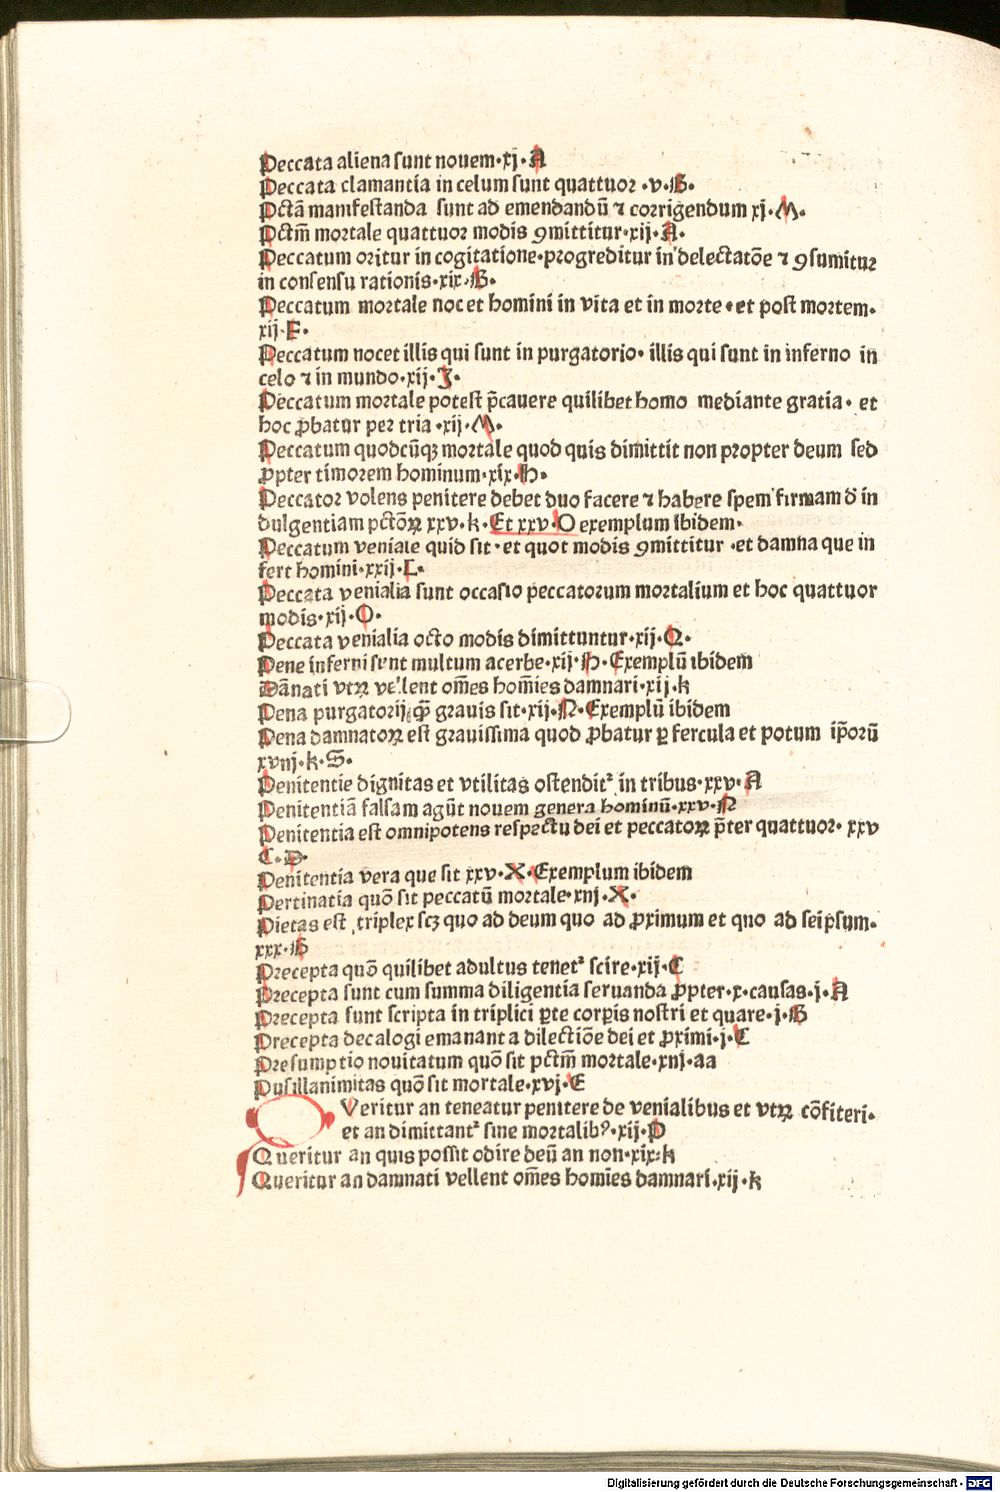 Peccata aliena sunt nouem·xj·A
Peccata clamantia in celum sunt quattuor ·v·B·
Pctā manifestanda sunt ad emendandū ⁊ corrigendum xj·M·
Pctm̄ mortale quattuor modis ꝯmittitur·xij·A·
Peccatum oritur in cogitatione·progreditur in delectatōe ⁊ ꝯsumitur
in consensu rationis·xix·B·
Peccatum mortale nocet homini in vita et in morte·et post mortem·
xij·F·
Peccatum nocet illis qui sunt in purgatorio· illis qui sunt in inferno in
celo ⁊ in mundo·xij·J·
Peccatum mortale potest p̄cauere quilibet homo mediante gratia· et
hoc ꝓbatur per tria ·xij·M·
Peccatum quodcūqꝫ mortale quod quis dimittit non propter deum sed
ꝓpter timorem hominum·xix·H·
Peccator volens penitere debet duo facere ⁊ habere spem firmam d̄ in
dulgentiam pctōꝝ xxv·k·Et xxv·O exemplum ibidem·
Peccatum veniale quid sit·et quot modis ꝯmittitur ·et damna que in
fert homini·xxij·L·
Peccata venialia sunt occasio peccatorum mortalium et hoc quattuor
modis·xij·O·
Peccata venialia octo modis dimittuntur·xij·Q·
Pene inferni sunt multum acerbe·xij·H·Exemplū ibidem
Dānati vtꝝ vellent om̄es hom̄ies damnari·xij·k
Pena purgatorij qꝫ̄ grauis sit·xij·N·Exemplū ibidem
Pena damnatoꝝ est grauissima quod ꝓbatur ꝑ fercula et potum ip̄orū
xvnj·k·S·
Penitentie dignitas et vtilitas ostendit᷑ in tribus·xxv·A
Penitentiā falsam agūt nouem genera hominū·xxv·N
Penitentia est omnipotens respectu dei et peccatoꝝ p̄ter quattuor· xxv
C·D·
Penitentia vera que sit xxv·X·Exemplum ibidem
Pertinatia quō sit peccatū mortale·xnj·X·
Pietas est triplex scꝫ quo ad deum quo ad ꝓximum et quo ad seip̄sum·
xxx·B
Precepta quō quilibet adultus tenet᷑ scire·xij·C
Precepta sunt cum summa diligentia seruanda ꝓpter·x·causas·j·A
Precepta sunt scripta in triplici ꝑte corꝑis nostri et quare·j·B
Precepta decalogi emanant a dilectiōe dei et ꝓximi·j·C
Presumptio nouitatum quō sit pctm̄ mortale·xnj·aa
Pusillanimitas quō sit mortale·xvj·E
QVeritur an teneatur penitere de venialibus et vtꝝ cōfiteri·
et an dimittant᷑ sine mortalibꝰ·xij·P
Queritur an quis possit odire deū an non·xix·k
Queritur an damnati vellent om̄es hom̄ies damnari·xij·k
Digitalisierung gefördert durch die Deutsche Forschungsgemeinschaft · DFG